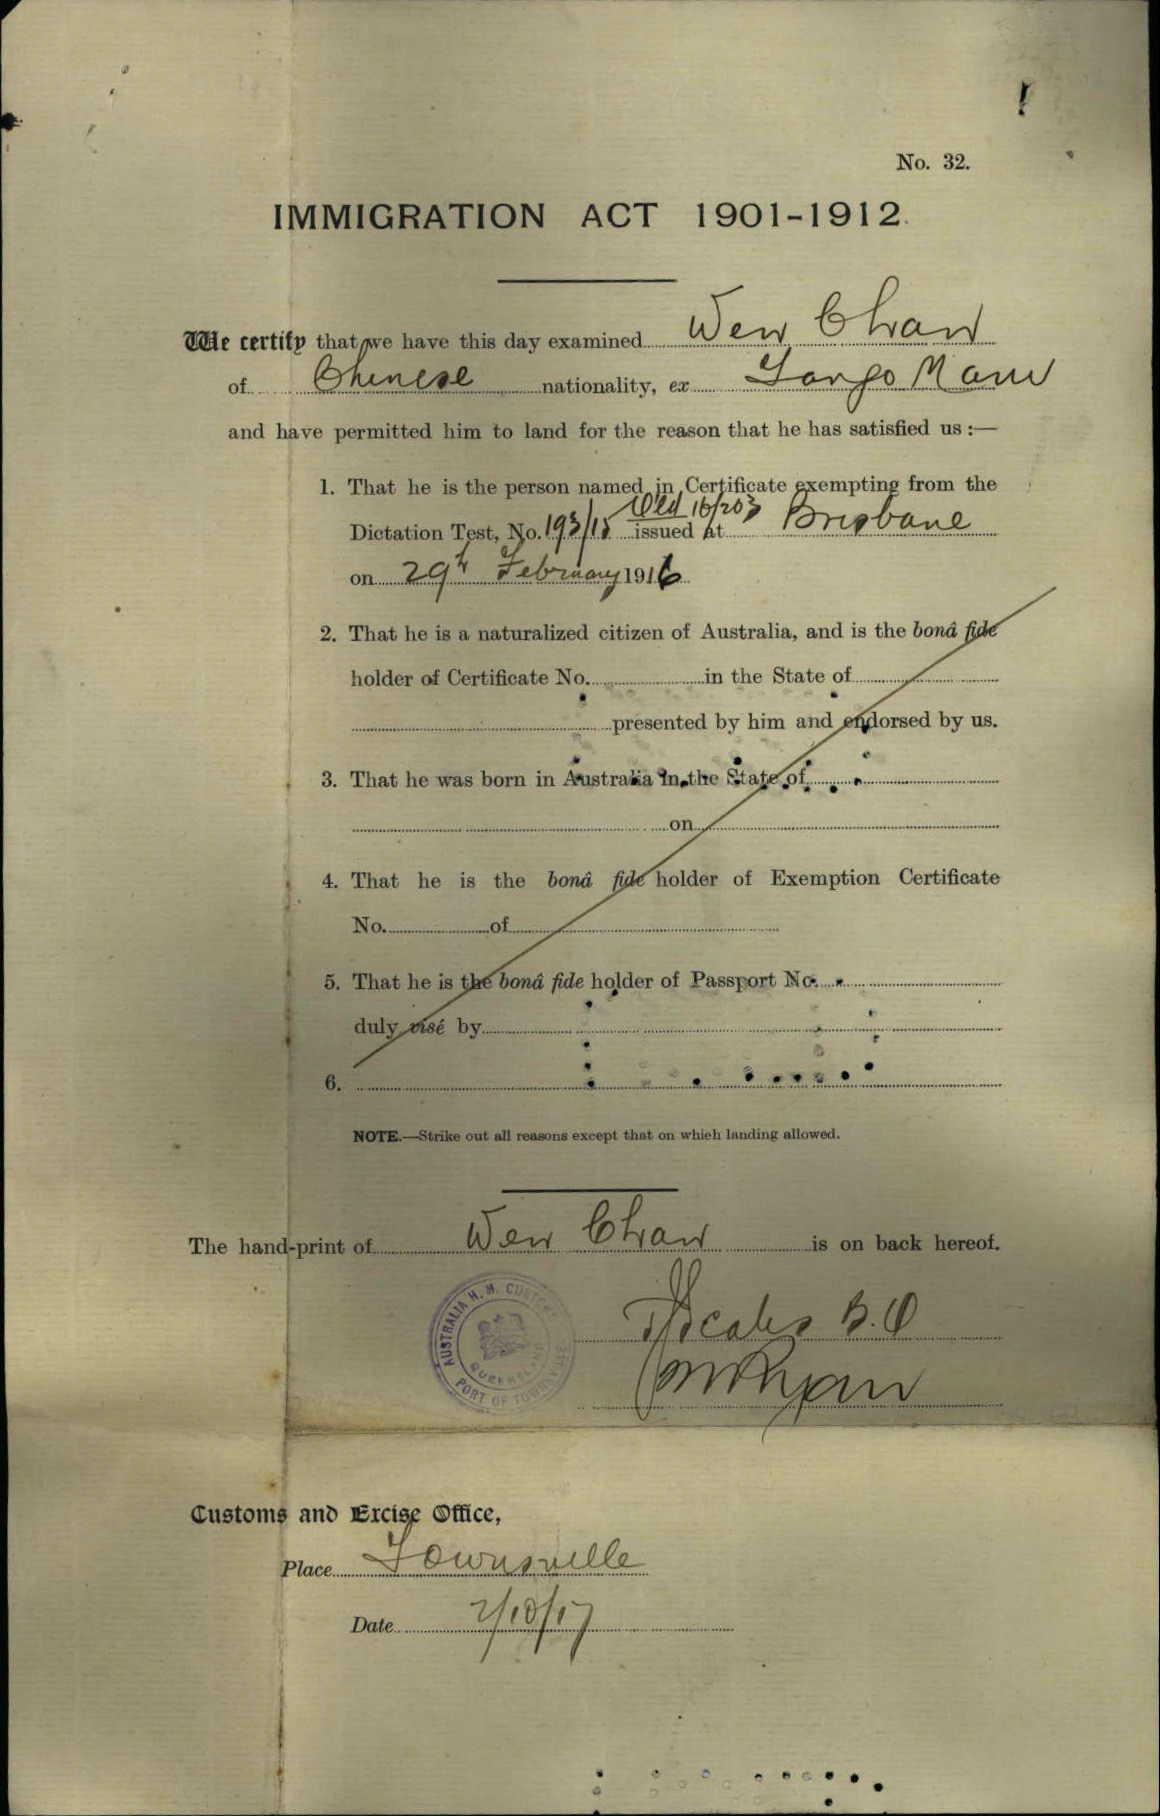 No. 32.
IMMIGRATION ACT 1901-1912.
We certify that we have this day examined Wen Chaw
of Chinese nationality, ex Tango Maru
and have permitted him to land for the reason that he has satisfied us :—
1. That he is the person named in Certificate exempting from the
Qld 16/203
Dictation Test, No. 193/15 issued at Brisbane
on 29th February 1916
2. That he is a naturalized citizen of Australia, and is the bonâ fide
holder of Certificate No. in the State of
presented by him and endorsed by us.
3. That he was born in Australia in the State of
on
4. That he is the bonâ fide holder of Exemption Certificate
No. of
5. That he is the bonâ fide holder of Passport No.
duly visé by
6.
NOTE.—Strike out all reasons except that on which landing allowed.
The hand-print of Wen Chaw is on back hereof.
AUSTRALIA H. M. CUSTOMS
QUEENSLAND
PORT OF TOWNSVILLE
B.O
Customs and Excise Office,
Place Townsville
Date 2/10/17